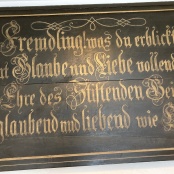 Fremdling! was du erblickst
hat Glaube und Liebe vollendet
Ehre des Stiftenden Gei
glaubend und liebend wie